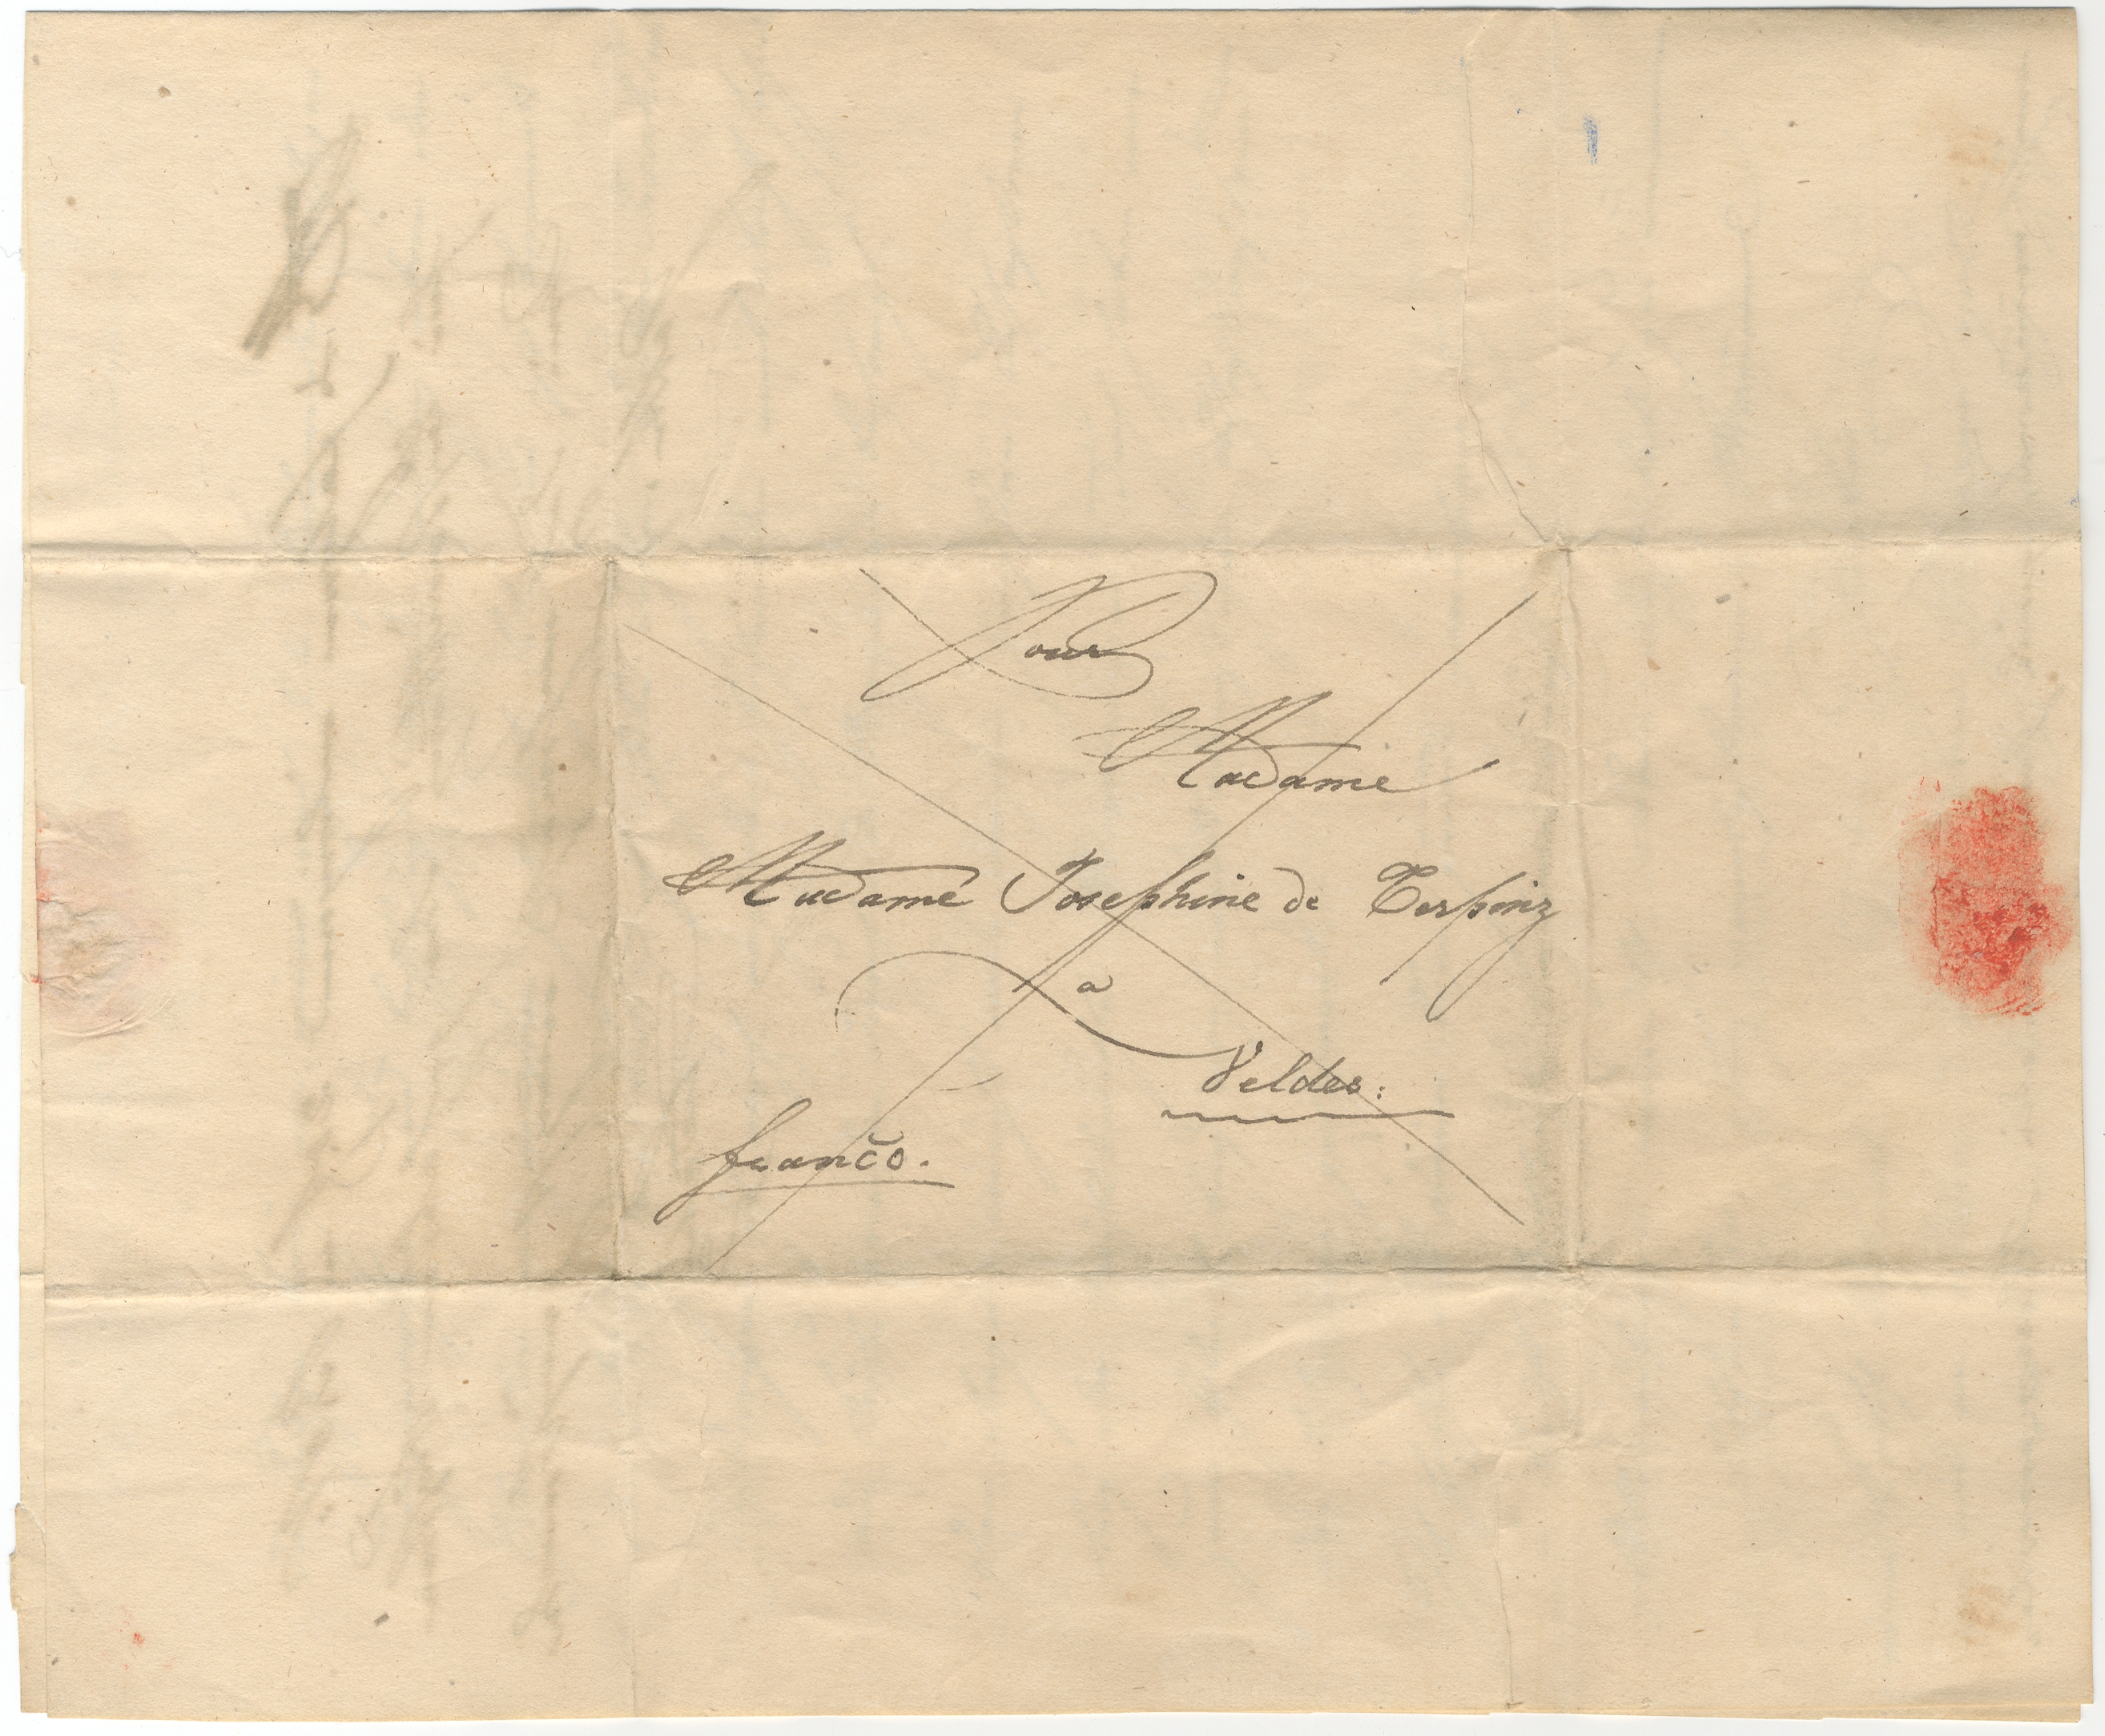 Pour
Madame
Madame Josephine de Terpinz
a
Veldes:
franco.